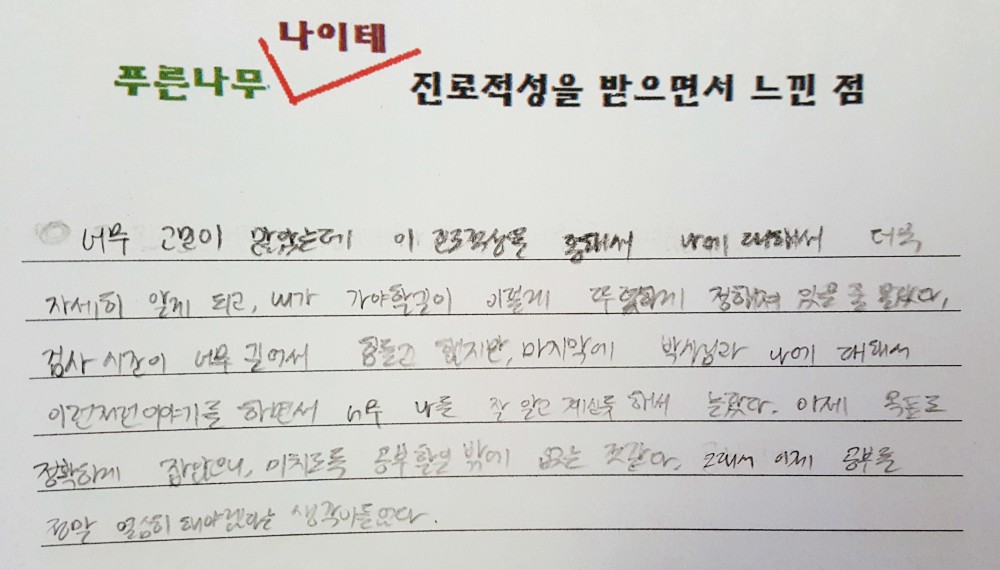 나이테
푸른나무 진로적성을 받으면서 느낀 점
너무 고민이 많았는데 이 진로적성을 통해서 나에 대해서 더욱
자세히 알게 되고, 내가 가야할길이 이렇게 뚜렷하게 정해져 있을 줄 몰랐다.
검사 시간이 너무 길어서 힘들긴 했지만, 마지막에 박사님과 나에 대해서
이런저런이야기를 하면서 너무 나를 잘 알고 계신듯 해서 놀랐다. 이제 목표도
정확하게 잡았으니, 미치도록 공부할일 밖에 없는 것같다. 그래서 이제 공부를
정말 열심히 해야겠다는 생각이들었다.